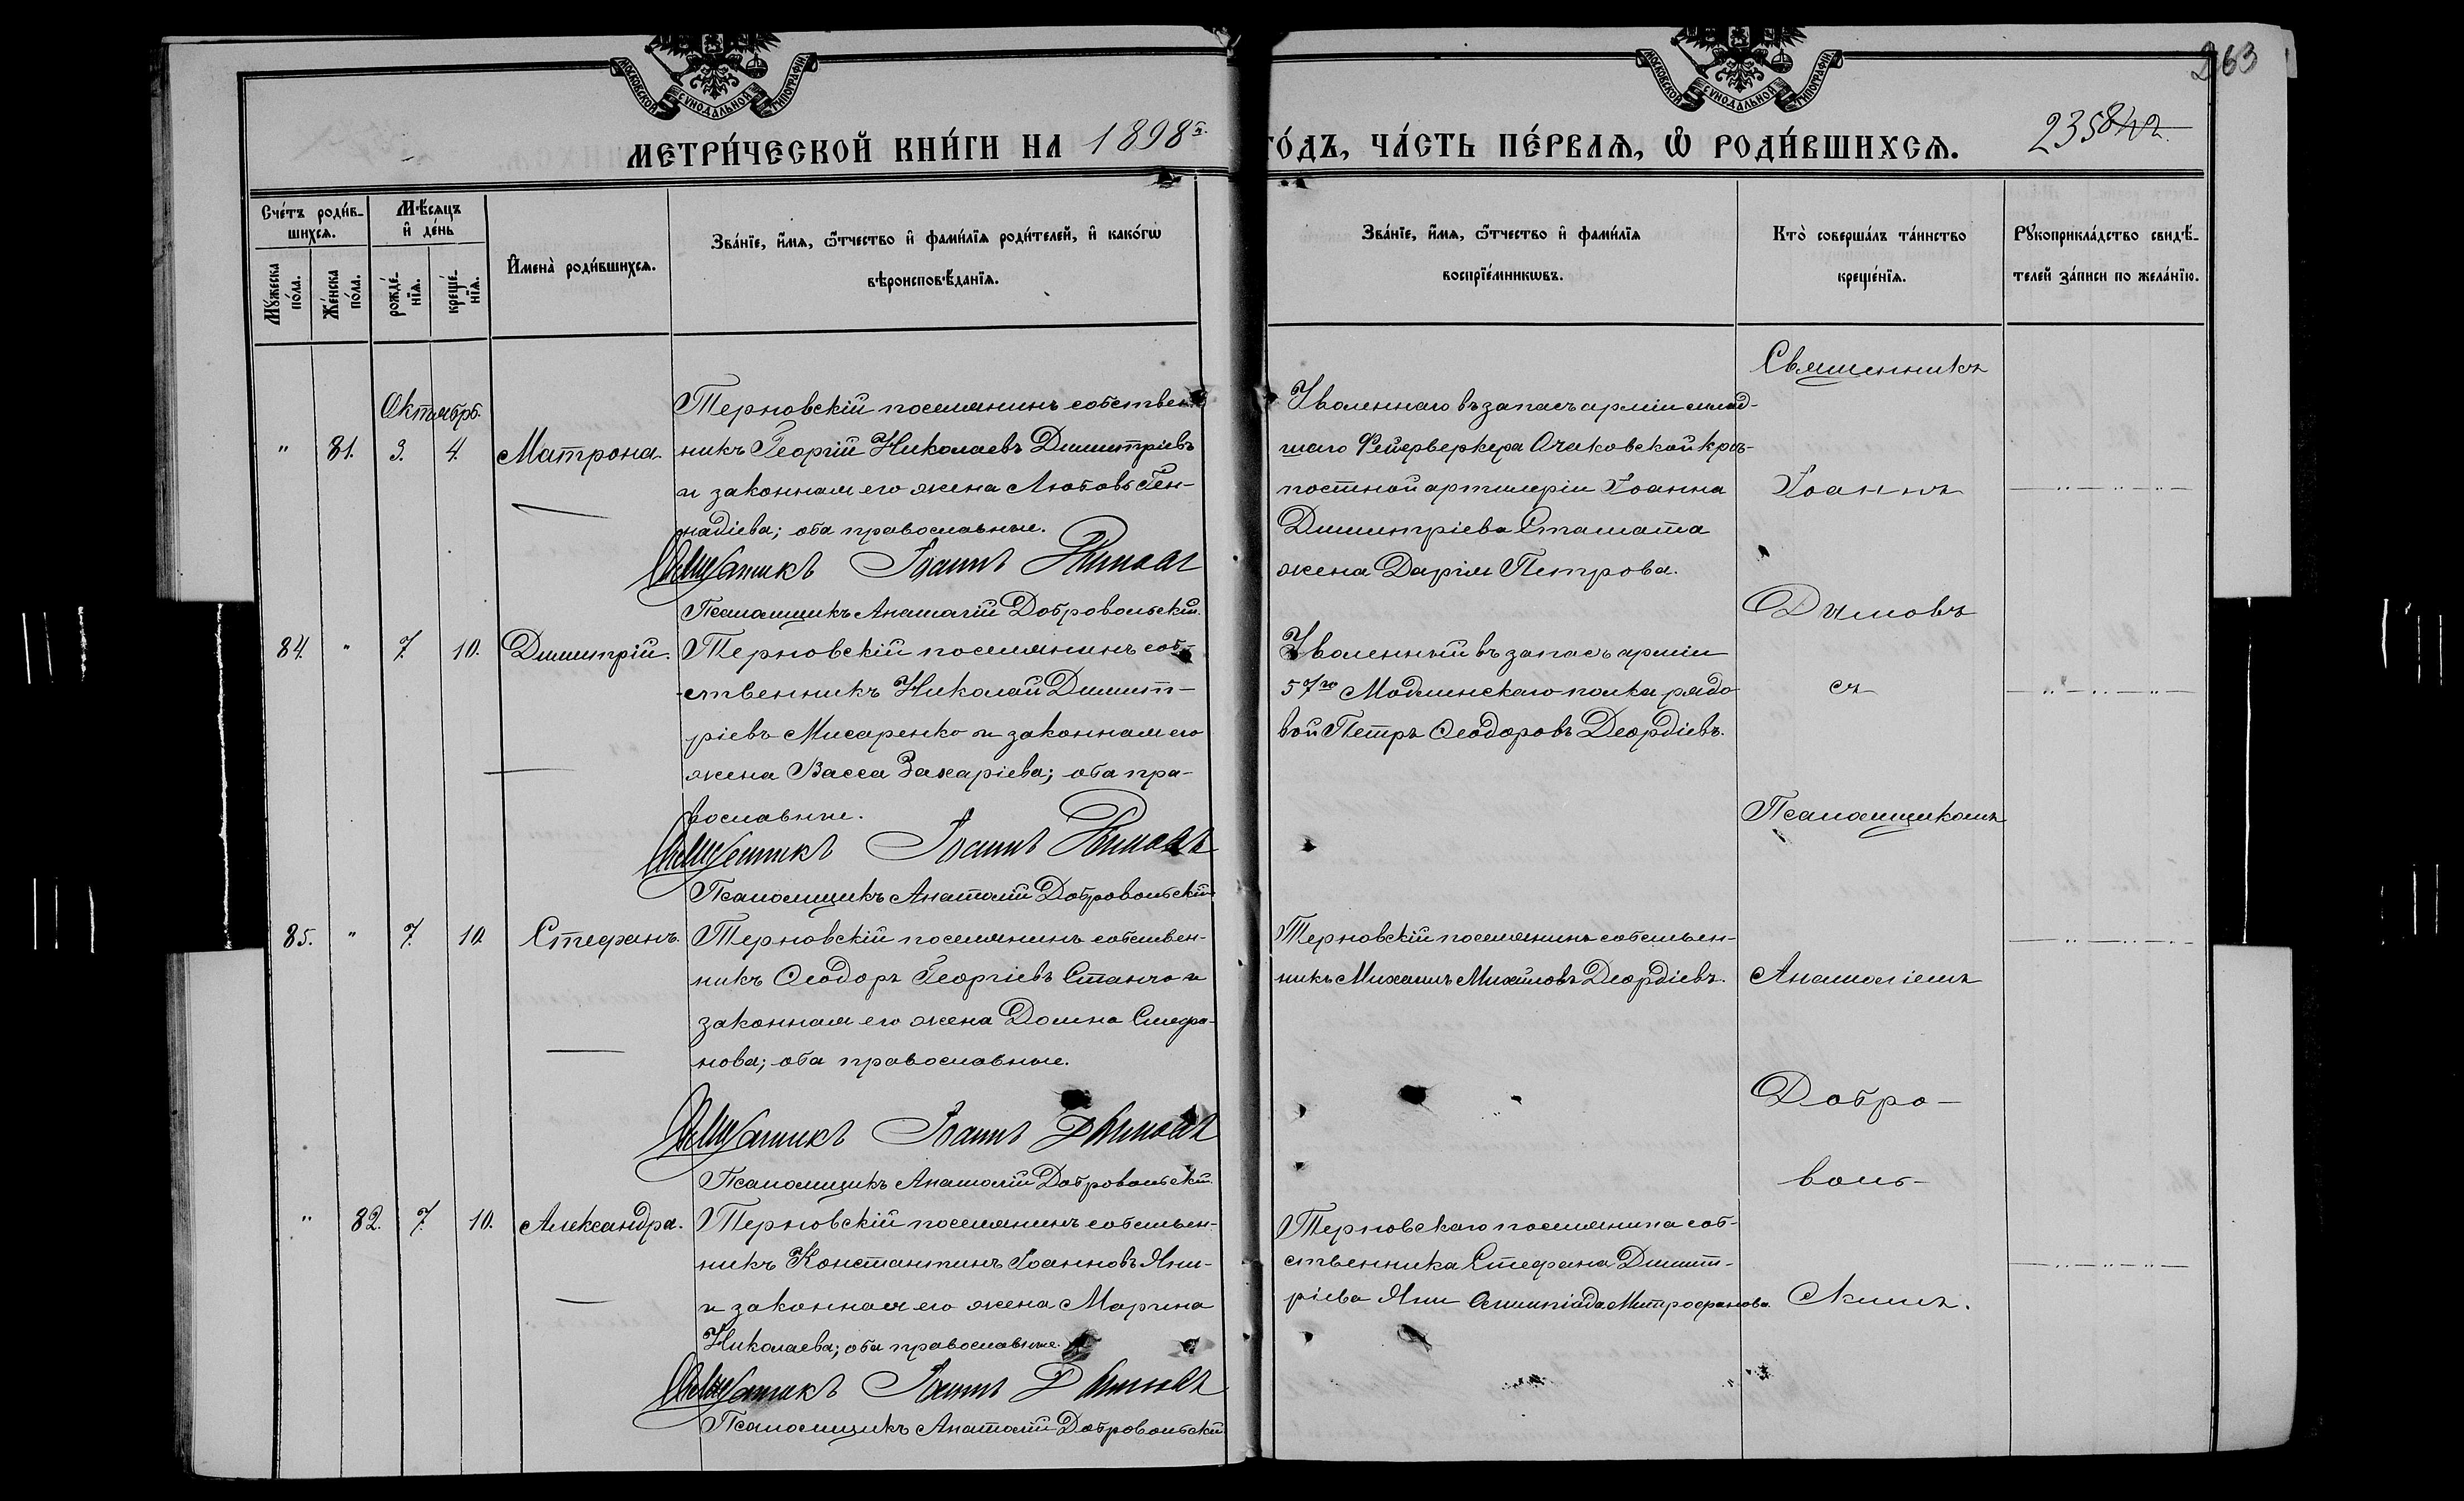 263
МОСКОВСКОЙ СѴНОДАЛЬНОЙ ТИПОГРАФІИ
МОСКОВСКОЙ СѴНОДАЛЬНОЙ ТИПОГРАФІИ
МЕТРИ́ЧЕСКОЙ КНИ́ГИ НА 1898й.
ГО́ДЪ, ЧА́СТЬ ПЕ́РВАѦ, Ѡ҆ РОДИ́ВШИХСѦ.
235
Сче́тъ роди́в-
шихсѧ.
Мꙋ́жеска по́ла.
Же́нска по́ла.
Мѣ́сѧцъ
и҆ де́нь
рожде́-
нїѧ.
креще́-
нїѧ.
И҆мена̀ роди́вшихсѧ.
Зва́нїе, и҆́мѧ, ѻ҆́тчество и҆ фами́лїѧ роди́телей, и҆ како́гѡ
вѣроисповѣ́данїѧ.
Зва́нїе, и҆́мѧ, ѻ҆́тчество и҆ фами́лїѧ
воспрїе́мникѡвъ.
Кто̀ соверша́лъ та́инство
креще́нїѧ.
Рꙋкоприкла́дство свидѣ́-
телей за́писи по жела́нїю.
Октябрь.
" 81. 3. 4. Матрона.
Терновскій поселянинъ собствен-
никъ Георгій Николаевъ Димитріевъ
и законная его жена Любовь Ген-
надіева; оба православные.
Священникъ Іоаннъ Димовъ
Псаломщикъ Анатолій Добровольскій.
Уволеннаго въ запасъ арміи млад-
шаго Фейерверкера Очаковской крѣ-
постной артилеріи Іоанна
Димитріева Стамата
жена Дарія Петрова.
84. " 7. 10. Димитрій.
Терновскій поселянинъ соб-
ственникъ Николай Димит-
ріевъ Мисаренко и законная его
жена Васса Захаріева; оба пра-
вославные.
Священникъ Іоаннъ Димовъ
Псаломщикъ Анатолій Добровольскій
Уволенный въ запасъ арміи
57го Модлинскаго полка рядо
вой Петръ Ѳеодоровъ Деордіевъ.
85. " 7. 10. Стефанъ.
Терновскій поселянинъ собствен-
никъ Ѳеодоръ Георгіевъ Станчо и
законная его жена Домна Стефа-
нова; оба православные.
Священникъ Іоаннъ Димовъ
Псаломщикъ Анатолій Добровольскій.
Терновскій поселянинъ собствен-
никъ Михаилъ Михайловъ Деордіевъ.
" 82. 7. 10. Александра.
Терновскій поселянинъ собствен-
никъ Константинъ Іоанновъ Яни-
и законная его жена Марина
Николаева; оба православные.
Священникъ Іоаннъ Димовъ
Псаломщикъ Анатолій Добровольскій
Терновскаго поселянина соб-
ственника Стефана Димит-
ріева Яни Олимпіада Митрофанова.
Священникъ
Іоаннъ
Димовъ
съ
Псаломщикомъ
Анатоліемъ
Добро-
воль-
скимъ.